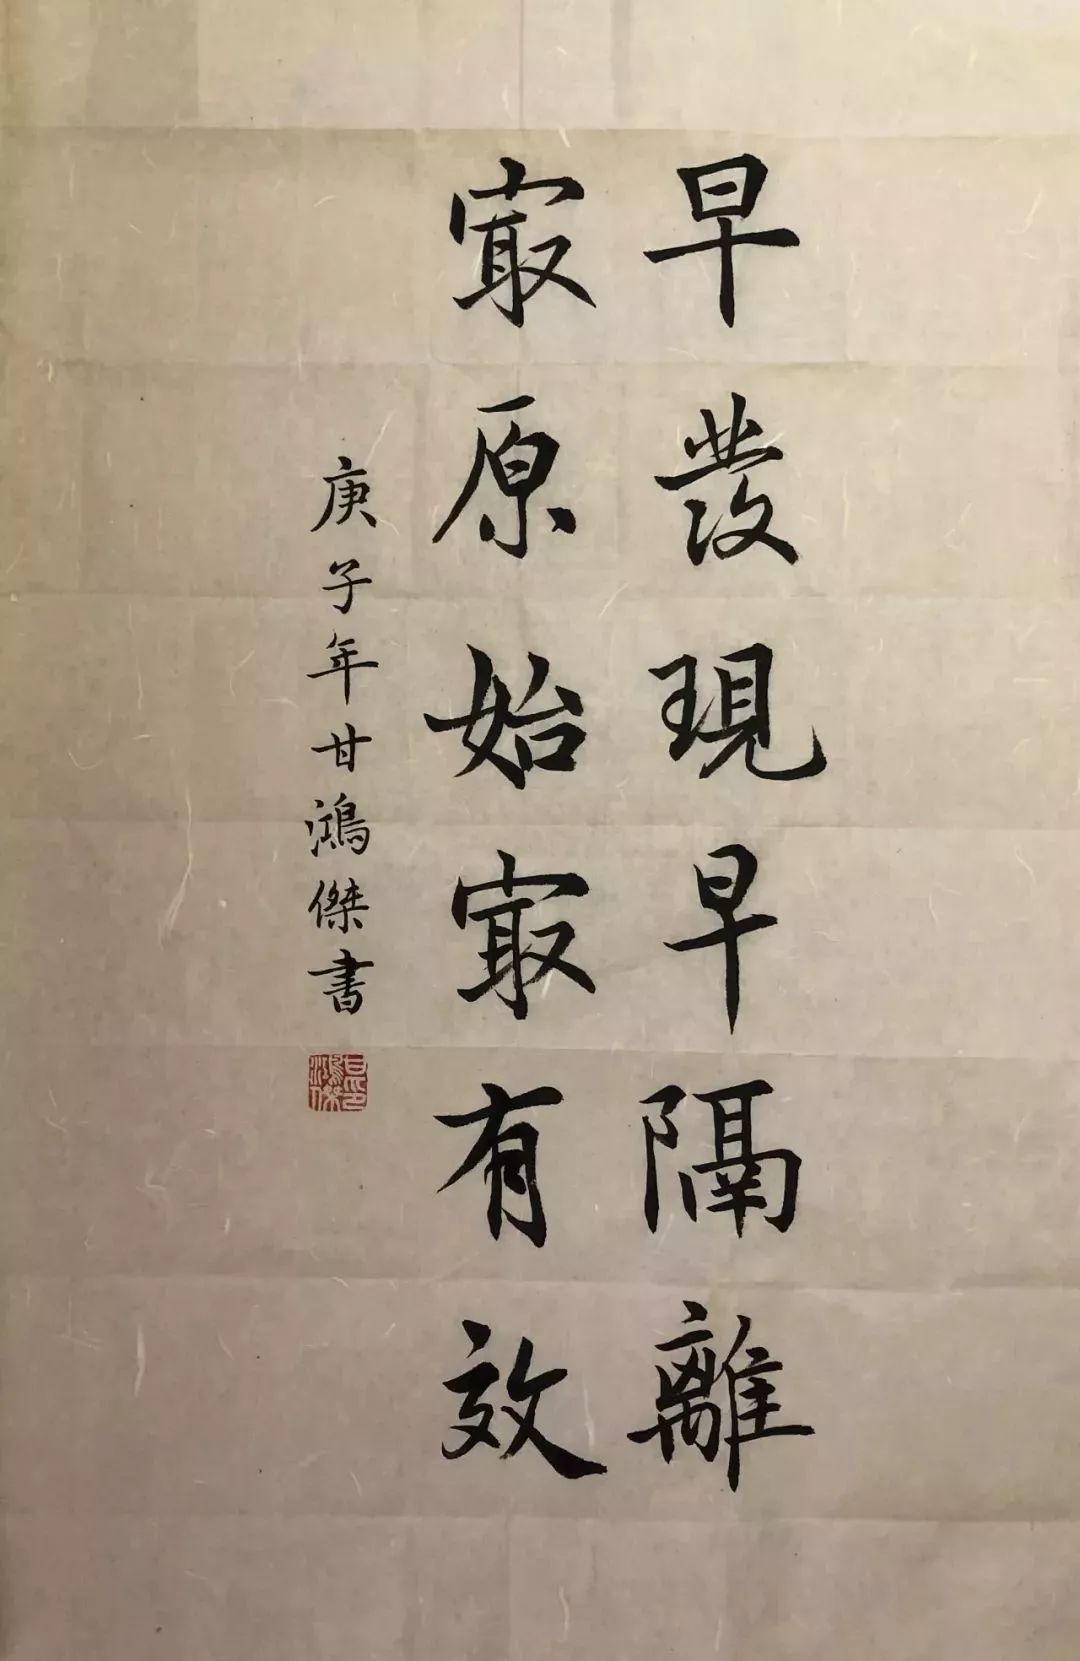 早發現早隔離
寂原始寂有效
庚子年甘鴻傑書
甘鴻傑印